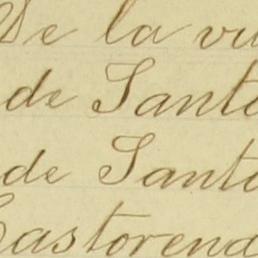 De la vi
de Santa
de Santa
Castorena